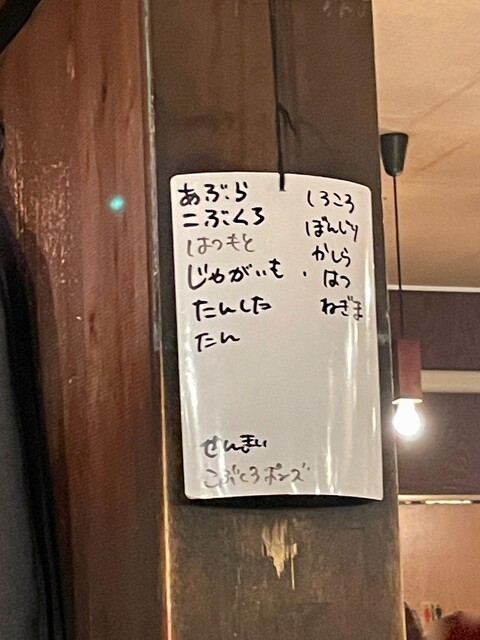 あぶら
こぶくろ
はつもと
じゃがいも
たんした
たん
せんまい
こぶくろポンズ
しろころ
ぼんじり
かしら
はつ
ねぎま